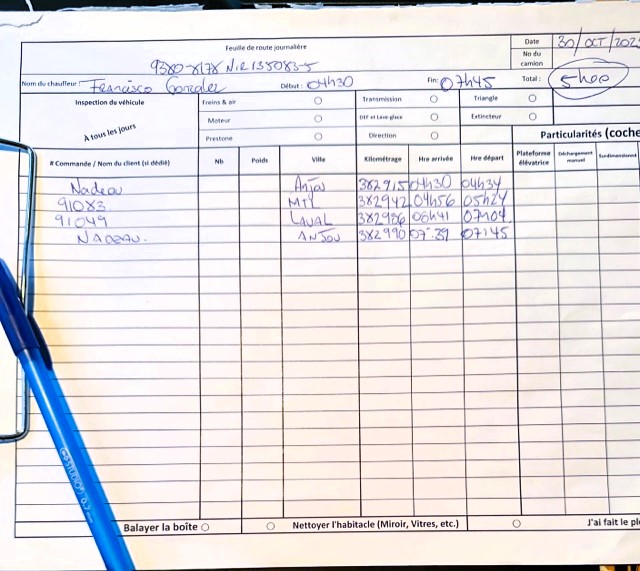 Feuille de route journalière
Date 30/OCT/202
No du camion
9380-8178 NIR135083-5
Nom du chauffeur: Francisco Gonzalez Début: 04h30 Fin: 07h45 Total: 5h00
Inspection du véhicule Freins & air Transmission Triangle
A tous les jours Moteur Diff et Lave-glace Extincteur
Prestone Direction Particularités (coche
# Commande / Nom du client (si dédié) Nb Poids Ville Kilométrage Hre arrivée Hre départ Plateforme élévatrice Déchargement manuel Surdimensionné
Nadeau Anjou 382915 04h30 04h34
91083 MTL 382942 04h56 05h24
91049 LAVAL 382986 06h41 07h04
NADEAU. ANJOU 382990 07:39 07h45
Balayer la boîte Nettoyer l'habitacle (Miroir, Vitres, etc.) J'ai fait le pl